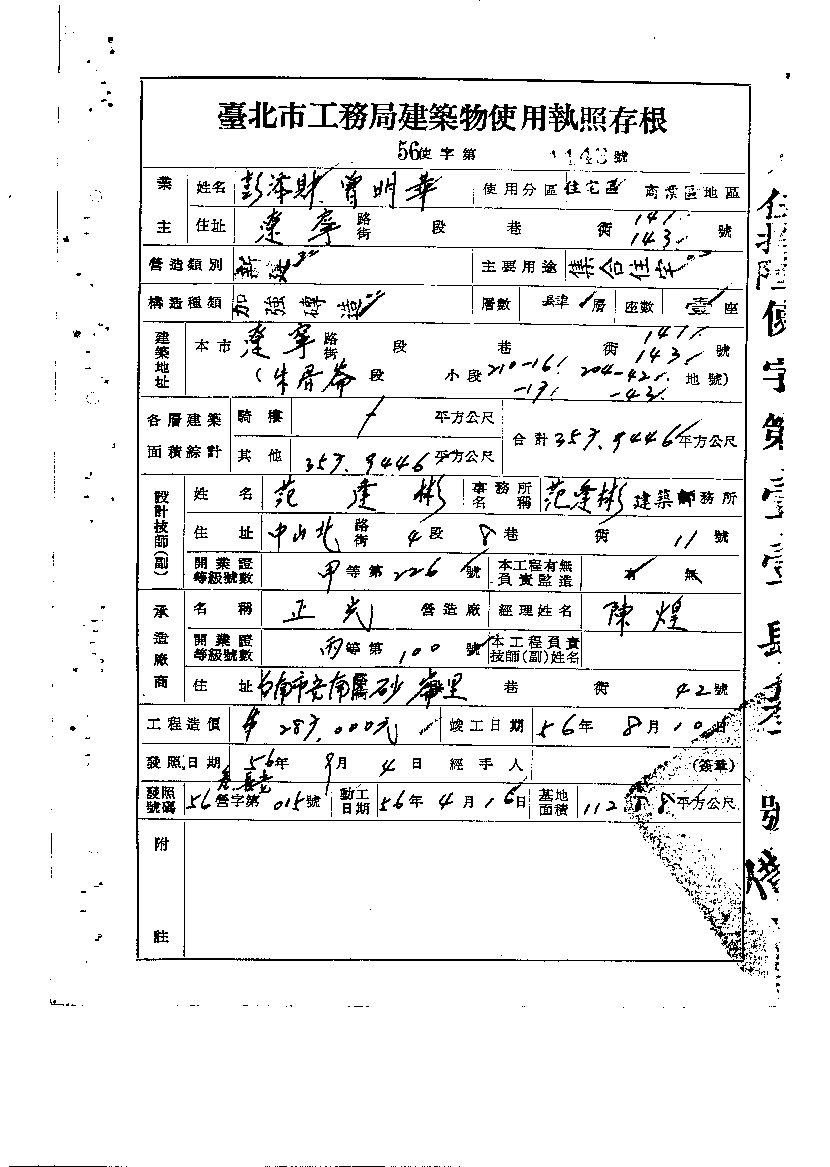 臺北市工務局建築物使用執照存根
56使字第 1143號
業主 姓名 彭添財 曾明華 使用分區 住宅區 商業區地區
住址 遼寧 路街 段 巷 衖 141. 143. 號
營造類別 新建 主要用途 集合住宅
構造種類 加強磚造 層數 層 座數 壹座
建築地址 本市 遼寧 路街 段 巷 衖 141. 143. 號
(朱厝崙 段 小段 210-16. -17. 204-42. -43. 地號)
各層建築面積綜計 騎樓 平方公尺 合計 357.9446 平方公尺
其他 357.9446 平方公尺
設計技師(副) 姓名 范逢彬 事務所名稱 范逢彬建築師務所
住址 中山北 路街 4段 8巷 衖 11號
開業證等級號數 甲等第226號 本工程有無負責監造 有 無
承造廠商 名稱 正光 營造廠 經理姓名 陳煌
開業證等級號數 丙等第100號 本工程負責技師(副)姓名
住址 台南市安南區砂崙里 巷 衖 42號
工程造價 $287,000元 竣工日期 56年8月10日
發照日期 56年9月4日 經手人 (簽章)
發照號碼 56營字第015號 動工日期 56年4月16日 基地面積 112 8平方公尺
附註
伍拾陸使字第壹壹肆叁號